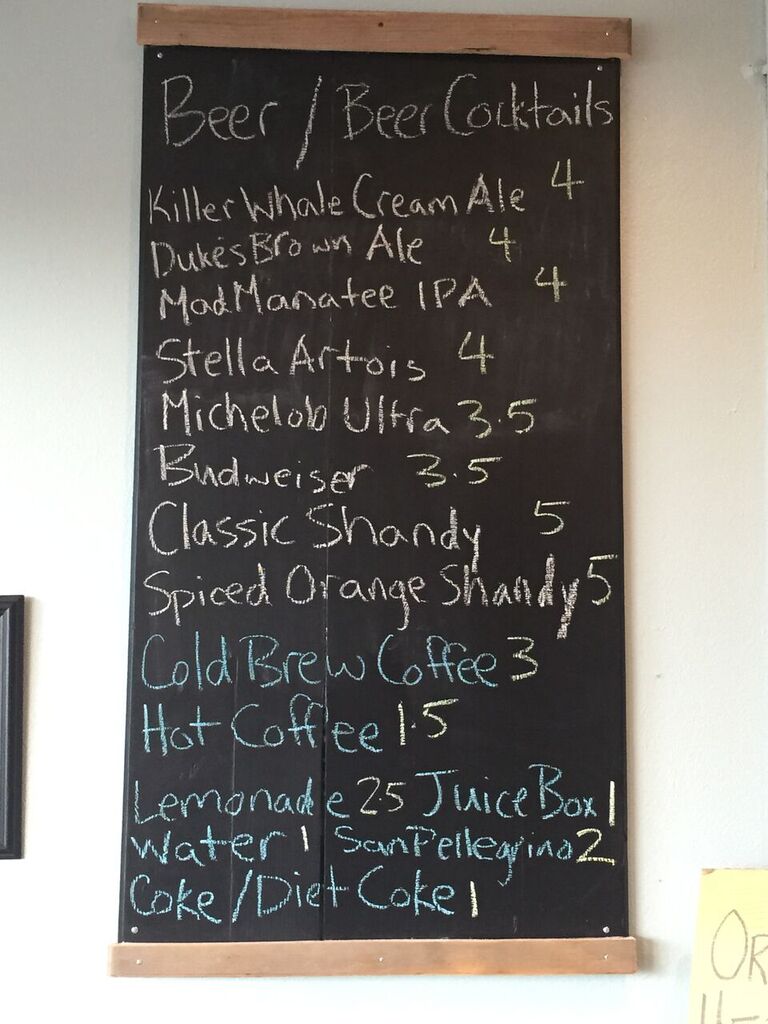 Beer / Beer Cocktails
Killer Whale Cream Ale 4
Duke's Brown Ale 4
Mad Manatee IPA 4
Stella Artois 4
Michelob Ultra 3.5
Budweiser 3.5
Classic Shandy 5
Spiced Orange Shandy 5
Cold Brew Coffee 3
Hot Coffee 1.5
Lemonade 2.5 Juice Box 1
Water 1 San Pellegrino 2
Coke / Diet Coke 1
OR
11-